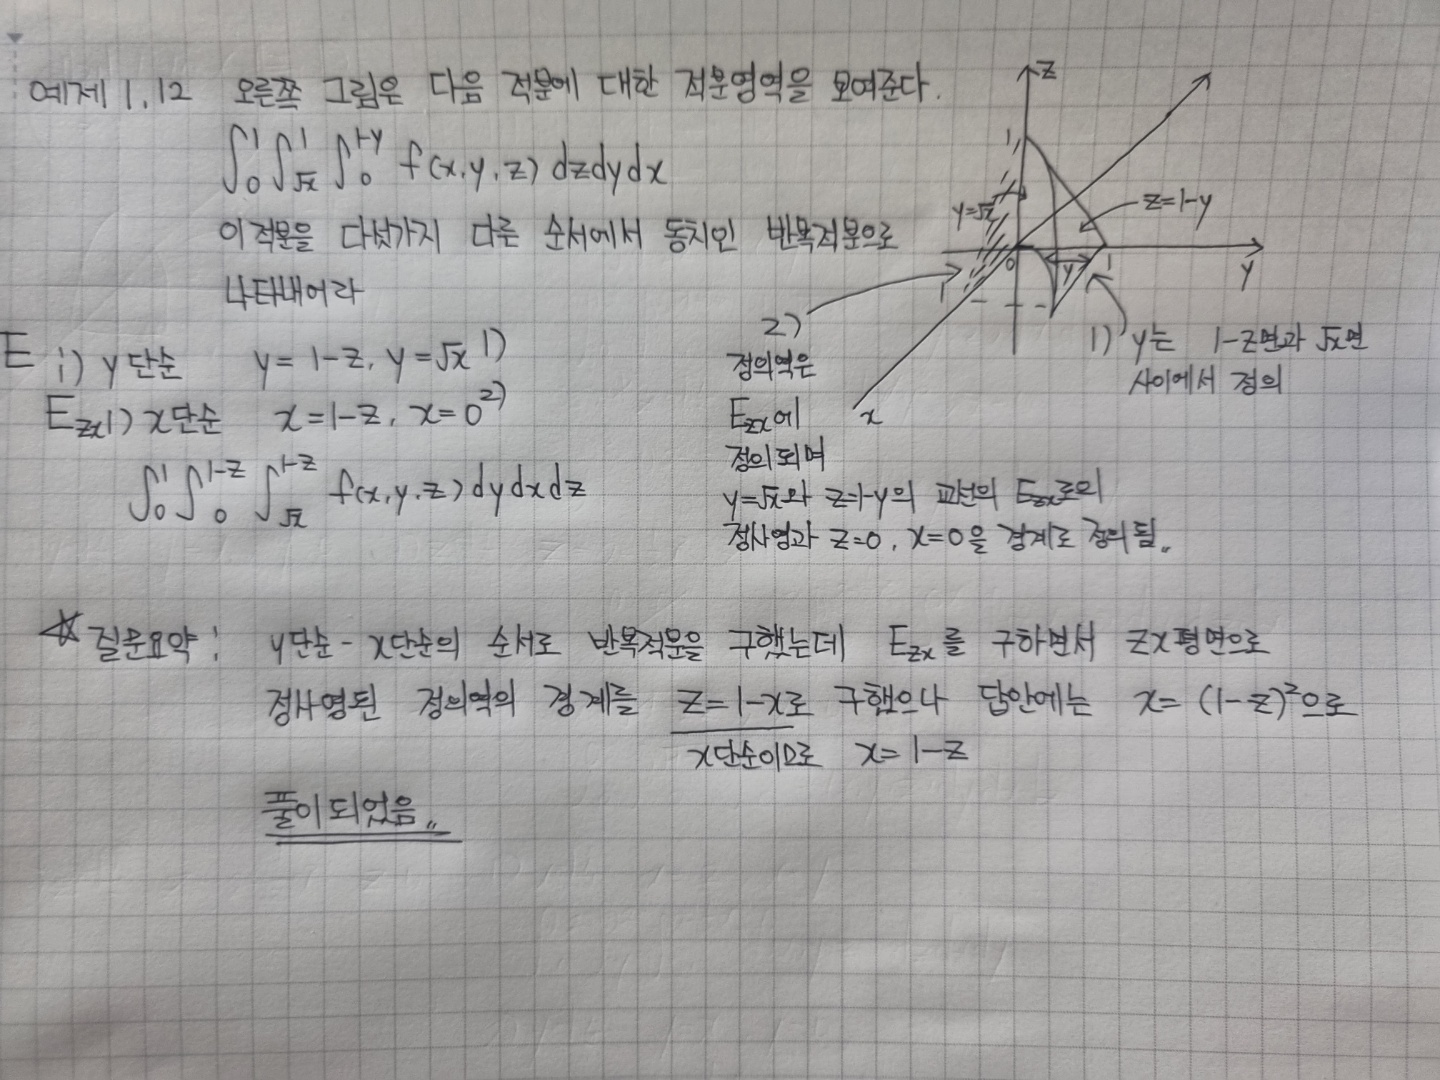 예제 1.12 오른쪽 그림은 다음 적분에 대한 적분영역을 보여준다.
∫₀¹∫√x¹∫₀^1-y f(x,y,z) dzdydx
이 적분을 다섯가지 다른 순서에서 동치인 반복적분으로
나타내어라
z
1
y=√x
z=1-y
0
y
1
y
1
x
E i) y단순 y=1-z, y=√x 1)
Ezx i) x단순 x=1-z, x=0 2)
∫₀¹∫₀^1-z∫√x^1-z f(x,y,z) dydxdz
1) y는 1-z면과 √x면
사이에서 정의
2)
정의역은
Ezx에
정의되며
y=√x와 z=1-y의 교선의 Ezx로의
정사영과 z=0, x=0을 경계로 정의됨.,
☆ 질문요약: y단순-x단순의 순서로 반복적분을 구했는데 Ezx를 구하면서 zx평면으로
정사영된 정의역의 경계를 z=1-x로 구했으나 답안에는 x=(1-z)²으로
x단순이므로 x=1-z
풀이되었음.,